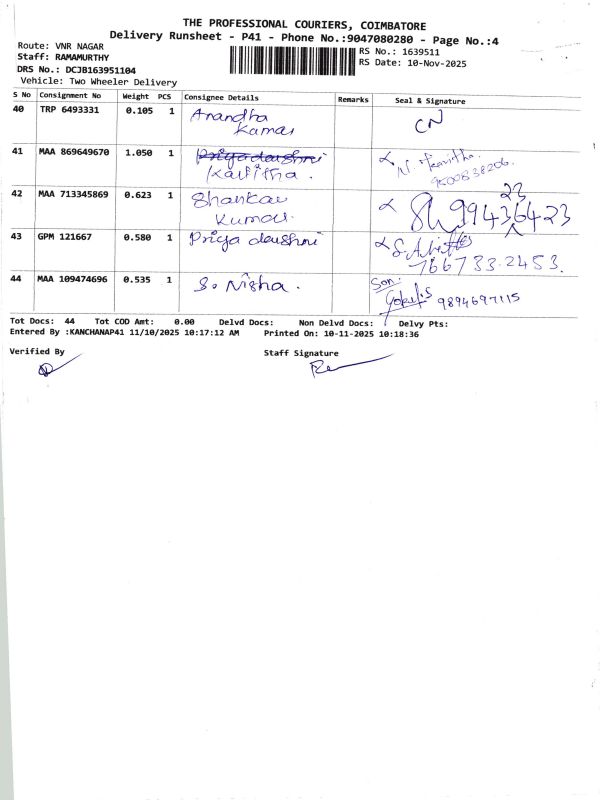 THE PROFESSIONAL COURIERS, COIMBATORE
Delivery Runsheet - P41 - Phone No.:9047080280 - Page No.:4
Route: VNR NAGAR
RS No.: 1639511
Staff: RAMAMURTHY
RS Date: 10-Nov-2025
DRS No.: DCJB163951104
Vehicle: Two Wheeler Delivery
S No Consignment No Weight PCS Consignee Details Remarks Seal & Signature
40 TRP 6493331 0.105 1 Anandha Kumar CN
41 MAA 869649670 1.050 1 Priya darshni Kavitha.
42 MAA 713345869 0.623 1 Shankar Kumar.
43 GPM 121667 0.580 1 Priya darshni 766733.2453.
44 MAA 109474696 0.535 1 S. Nisha. Son. Gokul.S 9894697115
Tot Docs: 44 Tot COD Amt: 0.00 Delvd Docs: Non Delvd Docs: Delvy Pts:
Entered By :KANCHANAP41 11/10/2025 10:17:12 AM Printed On: 10-11-2025 10:18:36
Verified By Staff Signature